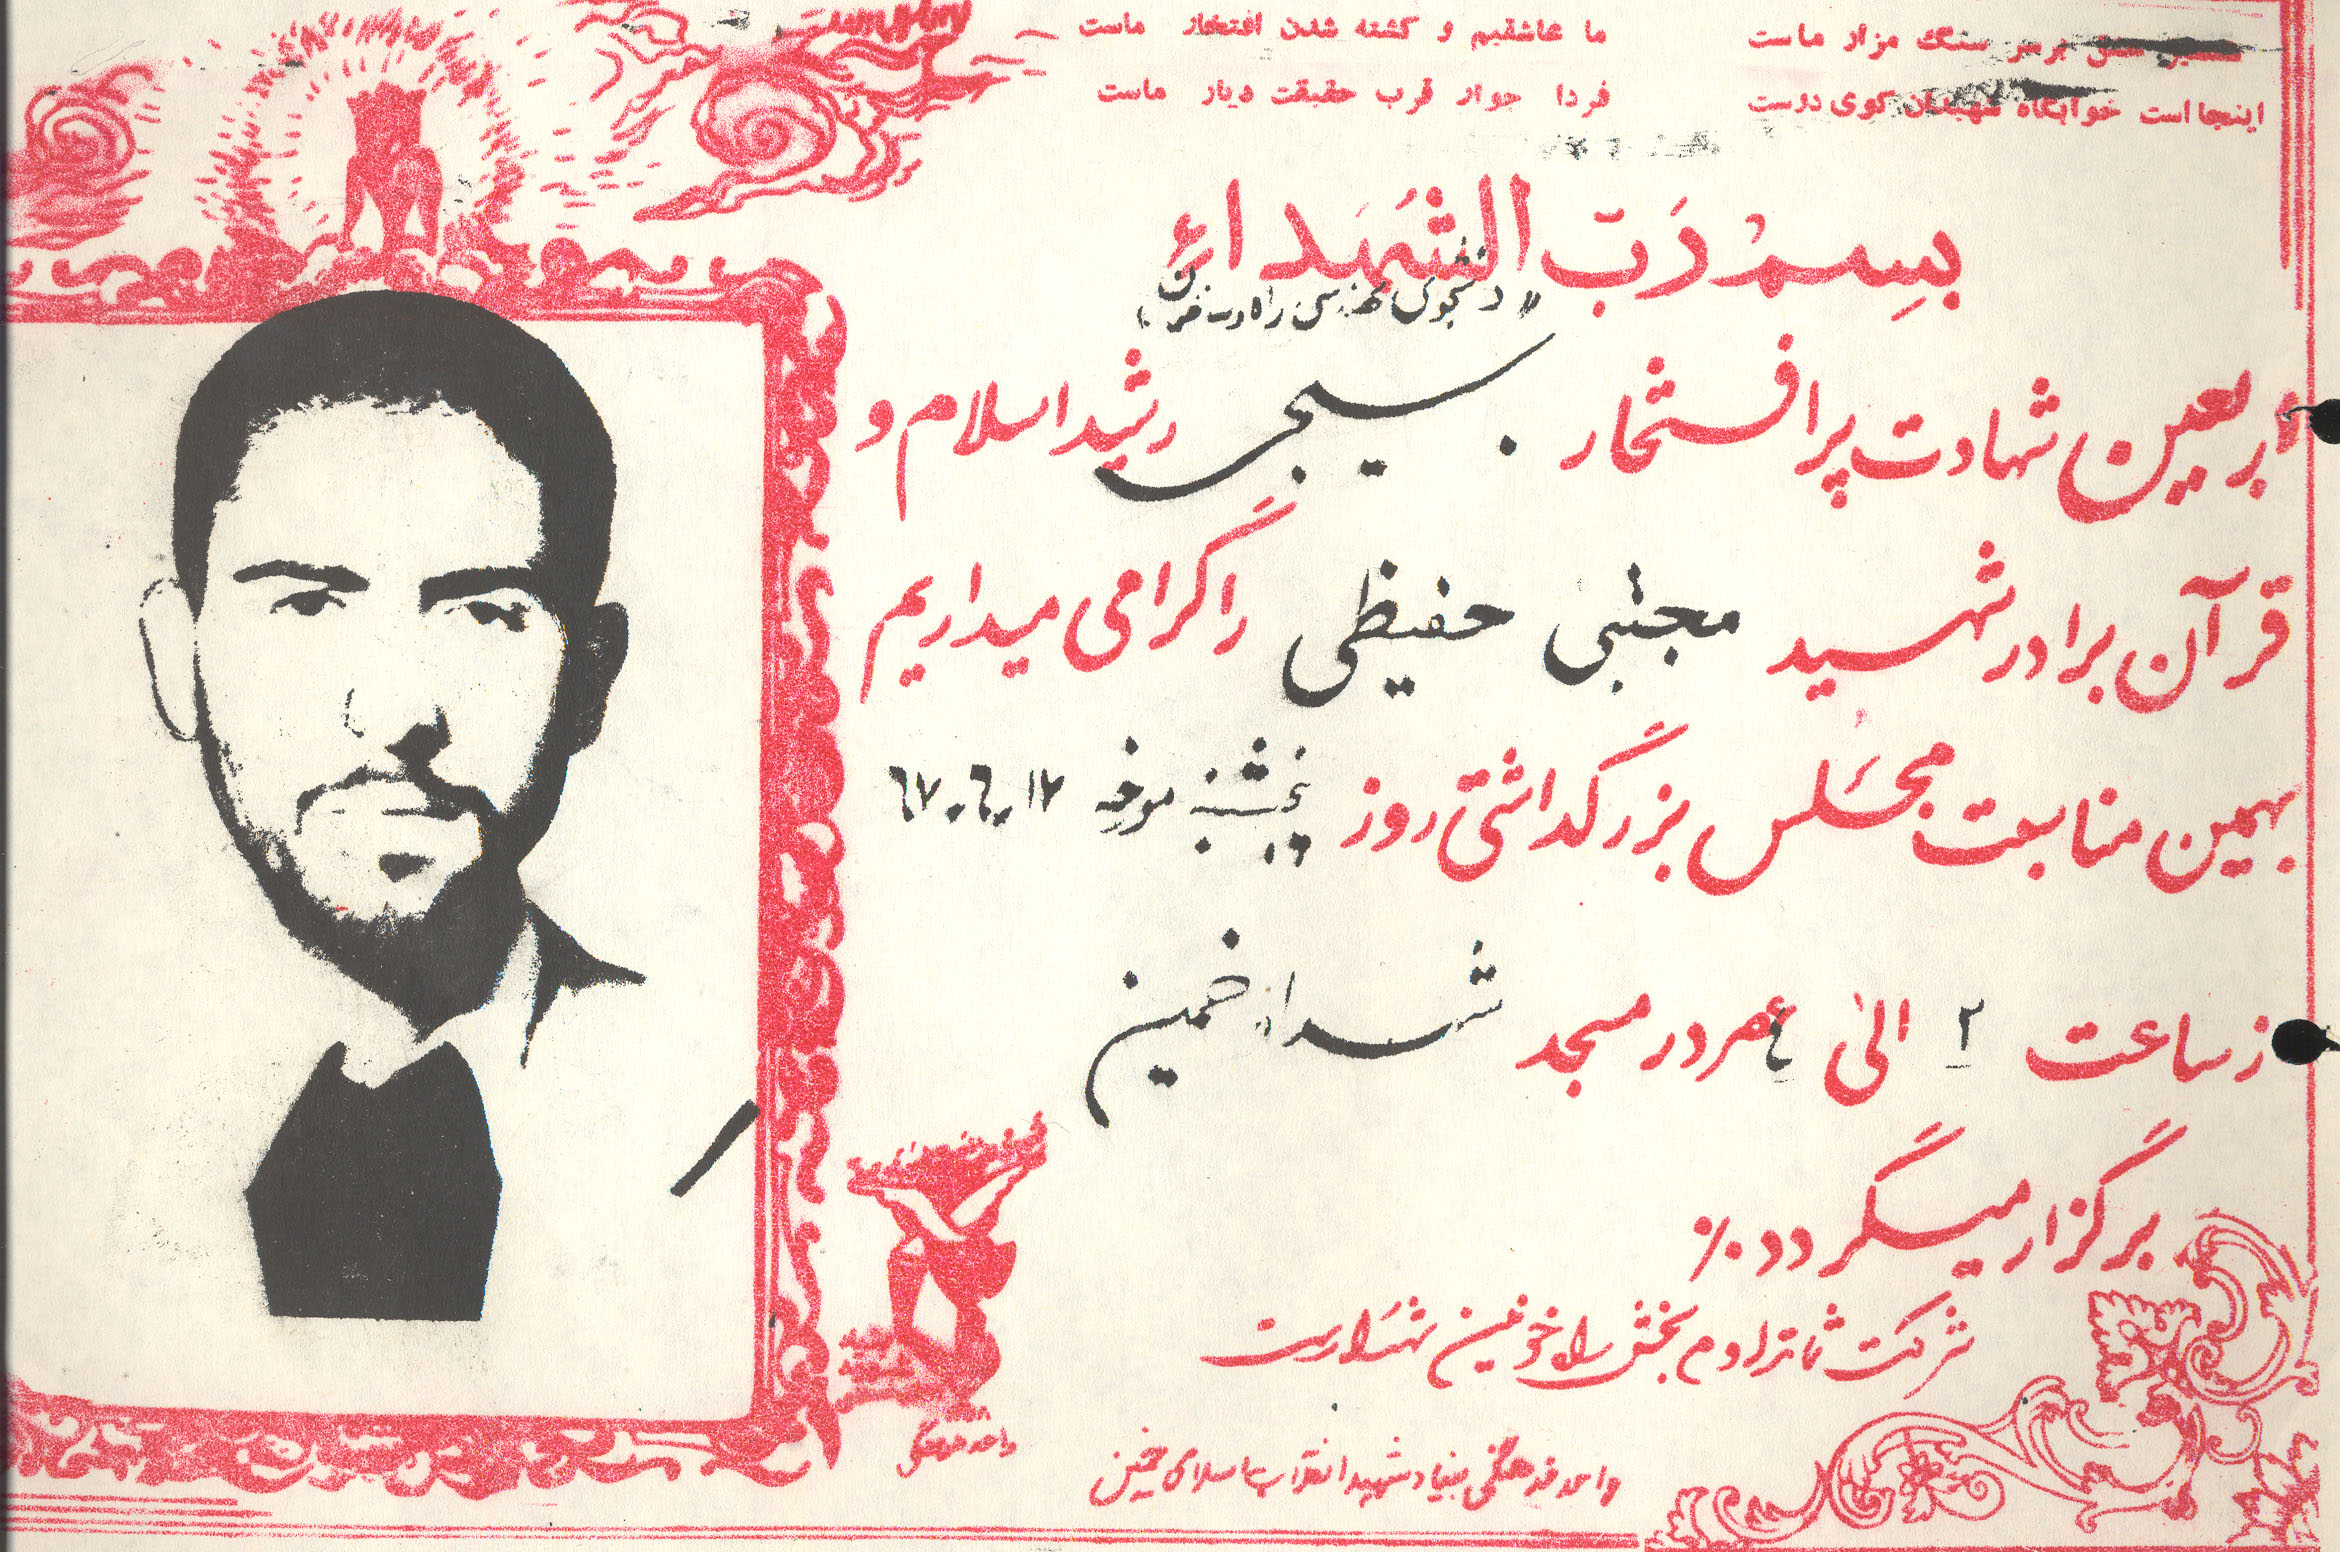 ما عاشقیم و کشته شدن افتخار ماست
بر سر سنگ مزار ماست
فردا جوار قرب حقیقت دیار ماست
اینجا است خوابگاه شهیدان کوی دوست
بسم رَبّ الشُهَداء
"دانشجوی مهندسی راه و ساختمان"
اربعین شهادت پرافتخار بسیجی رشید اسلام و
قرآن برادر شهید مجتبی حفیظی را گرامی میداریم
بهمین مناسبت مجلس بزرگداشتی روز پنجشنبه مورخه ۱۷-۶-۶۷
از ساعت ۲ الی ۴ عصر در مسجد شهداء خمین
برگزار میگردد٪
شرکت شما تداوم بخش راه خونین شهداست
واحد فرهنگی بنیاد شهید انقلاب اسلامی خمین
واحد فرهنگی